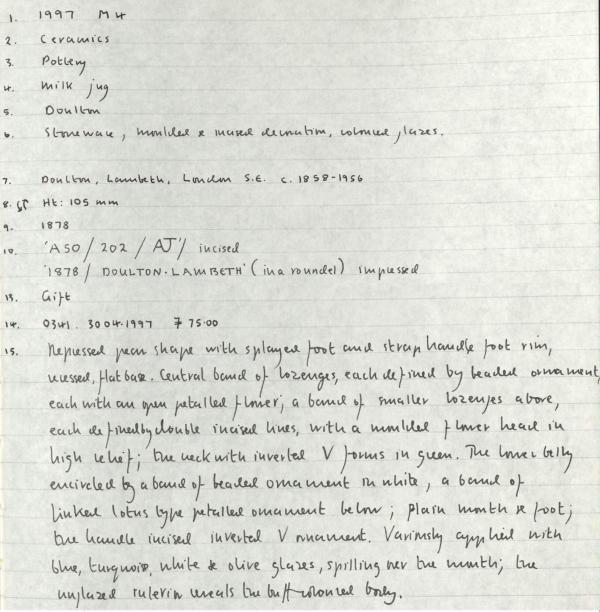 1. 1997 M4
2. Ceramics
3. Pottery
4. Milk jug
5. Doulton
6. Stoneware, moulded & incised decoration, coloured glazes.
7. Doulton, Lambeth, London S.E. c. 1858-1956
8. Ht: 105 mm
9. 1878
10. 'ASO / 202 / AJ'/ incised
'1878 / DOULTON·LAMBETH' (in a roundel) impressed
13. Gift
14. 0341. 3004.1997 75.00
15. Depressed pear shape with splayed foot and strap handle foot rim,
recessed, flat base. Central band of lozenges, each defined by beaded ornament,
each with an open petalled flower; a band of smaller lozenges above,
each defined by double incised lines, with a moulded flower head in
high relief; the neck with inverted V forms in green. The lower belly
encircled by a band of beaded ornament in white, a band of
linked lotus type petalled ornament below; plain mouth & foot;
the handle incised inverted V ornament. Variously applied with
blue, turquoise, white & olive glazes, spilling over the mouth; the
unglazed interior reveals the buff coloured body.